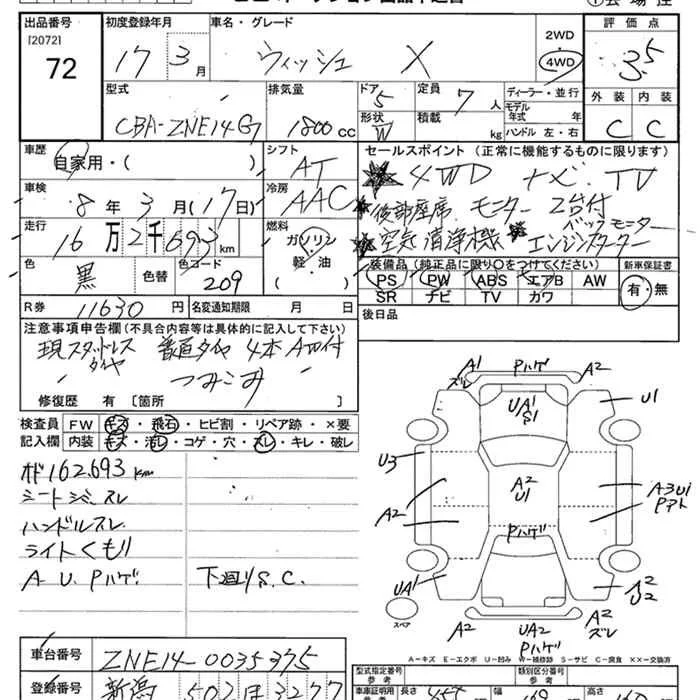 出品番号 初度登録年月 車名・グレード 2WD 評価点
[2072]
72 17 3月 ウィッシュ X 4WD 3.5
型式 排気量 ドア 5 定員 7人 ディーラー・並行 外装 内装
CBA-ZNE14G 1800cc 形状 W 積載 kg モデル年式 年式
ハンドル 左・右 C C
車歴 自家用・( ) シフト AT セールスポイント (正常に機能するものに限ります)
★4WD ナビ.TV
車検 8年3月(17日) 冷房 AAC ★後部座席.モニター2台付
バックモニター
走行 16万2千693km 燃料 ガソリン ★空気清浄機 ★エンジンスターター
軽・油
( )
色 黒 色替 色コード 209 装備品 (純正品に限り○をつけてください) 新車保証書
PS PW ABS エアB AW 有・無
SR ナビ TV カワ
R券 11630円 名変通知期限 月 日 後日品
注意事項申告欄(不具合内容等は具体的に記入して下さい)
現スタッドレスタイヤ 普通タイヤ4本AW付
つみこみ
修復歴 有 〔箇所 〕
検査員 FW キズ・飛石・ヒビ割・リペア跡・×要
記入欄 内装 キズ・汚レ・コゲ・穴・スレ・キレ・破レ
162693km
ハンドルスレ
ライトくもり
A U. Pハゲ. 下廻りS.C.
A1 Pハゲ A2
ズレ
UA1
S1
U1
U3
A2
A2
U1
A3U1
Pアト
Pハゲ
UA1
A2
U2
スペア
A2 UA2 A2
Pハゲ ズレ
A…キズ E…エクボ U…凹み W…補修跡 S…サビ C…腐食 XX…交換済
車台番号 ZNE14-0035375
型式指定番号 類別区分番号
参考 参考
登録番号 新潟 502 3277
車証証明用 長さ 幅 高さ